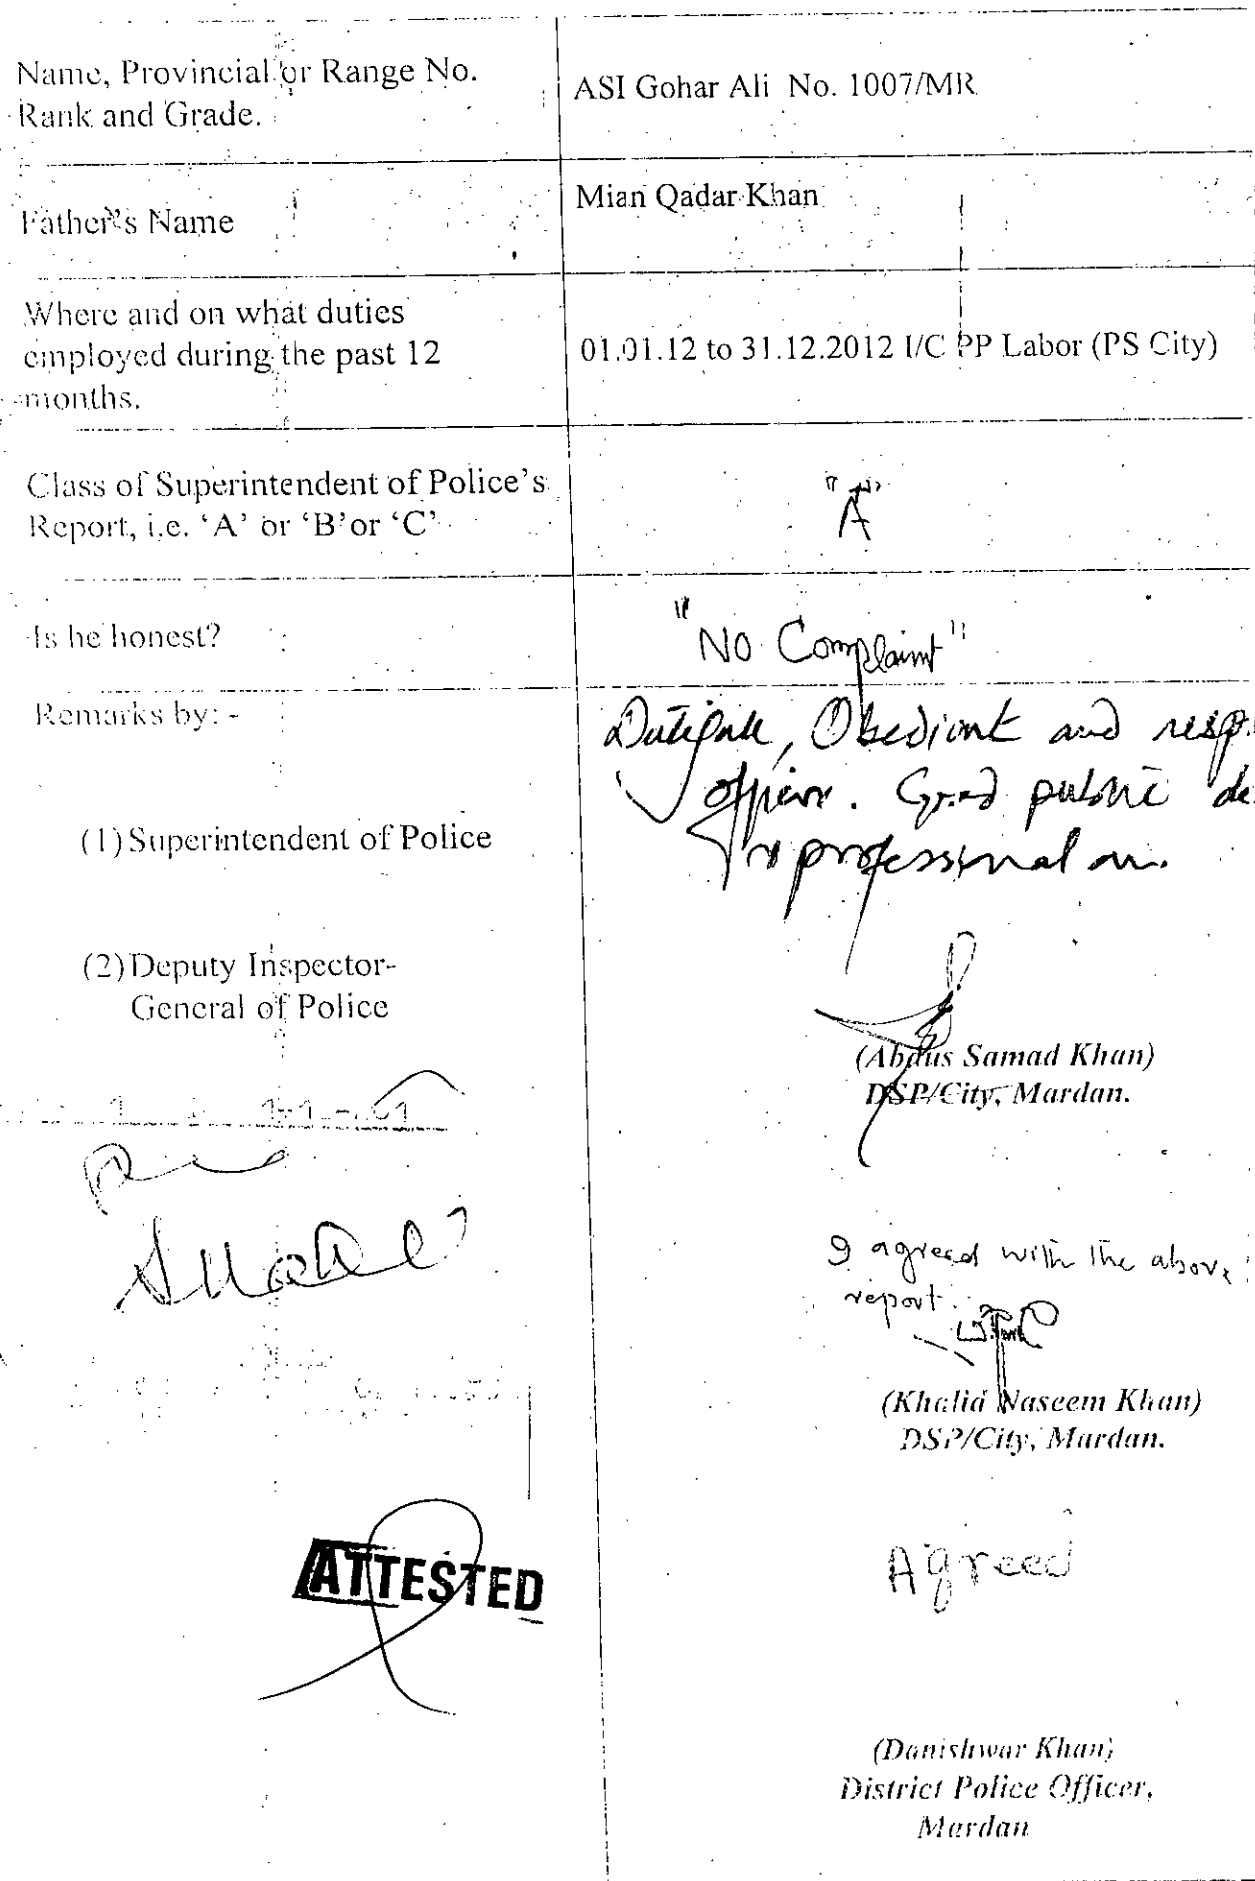 Name, Provincial or Range No.
Rank and Grade.
ASI Gohar Ali No. 1007/MR
Father's Name
Mian Qadar Khan
Where and on what duties
employed during the past 12
months.
01.01.12 to 31.12.2012 I/C PP Labor (PS City)
Class of Superintendent of Police's
Report, i.e. 'A' or 'B' or 'C'
"A"
Is he honest?
"No Complaint"
Remarks by: -
Obedient and resp
officer. Good public de
professional
(1) Superintendent of Police
(2) Deputy Inspector-
General of Police
(Abdus Samad Khan)
DSP/City, Mardan.
I agreed with the above
report.
(Khalid Naseem Khan)
DSP/City, Mardan.
ATTESTED
Agreed
(Danishwar Khan)
District Police Officer,
Mardan